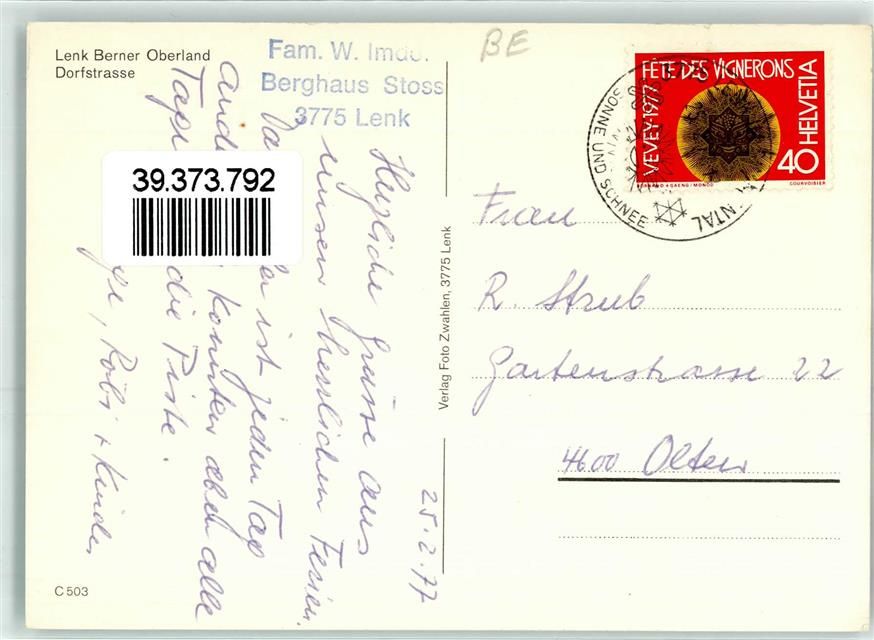 Lenk Berner Oberland
Dorfstrasse
Fam. W.
Berghaus Stoss
3775 Lenk
BE
39.373.792
25.2.77
Herzliche Grüsse aus
unsern herrlichen Ferien.
ist jeden Tag
konnten aber alle
Tage die Piste.
Röbi + Kinder
C 503
Verlag Foto Zwahlen, 3775 Lenk
FÊTE DES VIGNERONS
VEVEY·1977
HELVETIA
40
COURVOISIER
SONNE UND SCHNEE
Frau
R. Strub
Gartenstrasse 22
4600 Olten